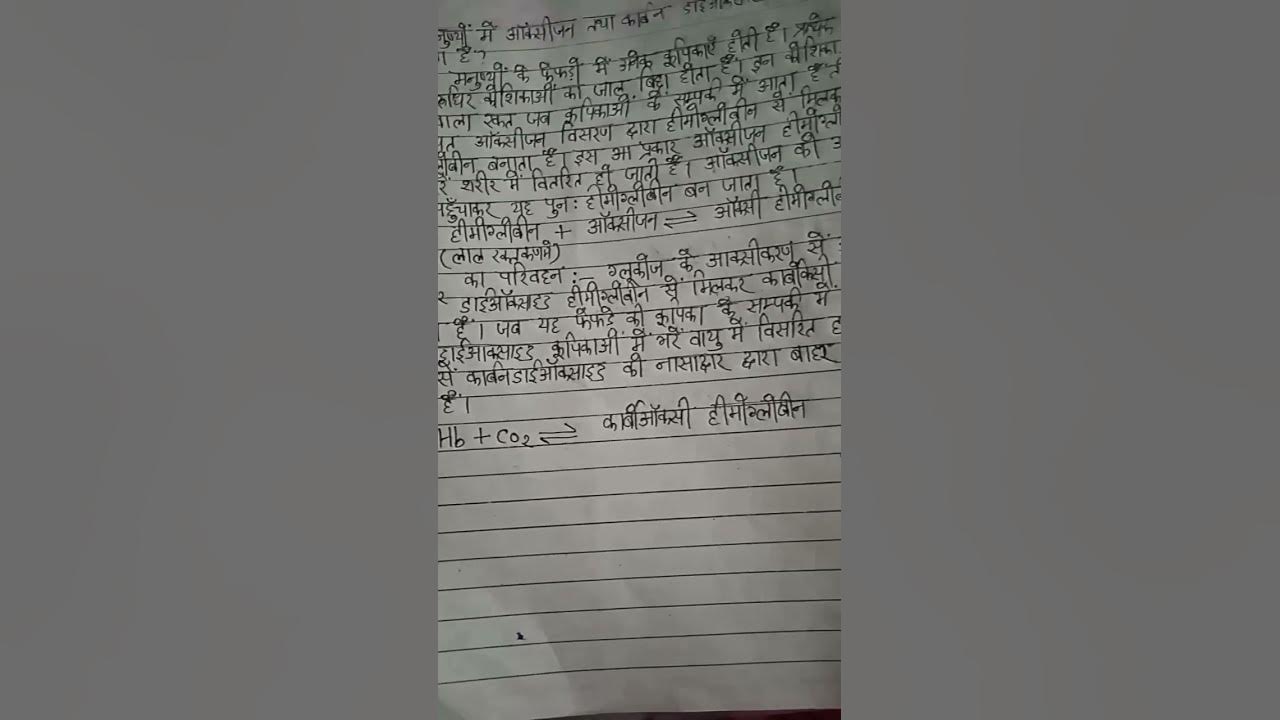 नुष्यों में ऑक्सीजन तथा कार्बन
ा है?
मनुष्यों के फेफड़ों में अनेक कूपिकाएँ होती है। प्रत्येक
रूधिर कोशिकाओं का जाल बिछा होता है। इन कोशिका
वाला रक्त जब कूपिकाओं के सम्पर्क में आता है
ऑक्सीजन विसरण द्वारा हीमोग्लोबीन से मिलक
बीन बनाता है। इस प्रकार ऑक्सीजन हीमोग्लो
रे शरीर में वितरित हो जाती है। ऑक्सीजन को
पहुँचाकर यह पुनः हीमोग्लोबीन बन जाता है।
हीमोग्लोबीन + ऑक्सीजन ⇌ ऑक्सी हीमोग्लोब
(लाल रक्तकणमे)
का परिवहन :- ग्लूकोज के आक्सीकरण से
डाईऑक्साइड हीमोग्लोबीन से मिलकर कार्बोक्सी
है। जब यह फेफड़े की कूपिका के सम्पर्क में
डाईआक्साइड कूपिकाओं में भरे वायु में विसरित ह
से कार्बनडाईऑक्साइड को नासाद्वार द्वारा बाहर
है।
Hb + CO₂ ⇌ कार्बोऑक्सी हीमोग्लोबीन